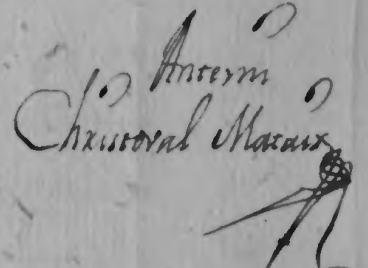 Ante mi
Christoval Mataix